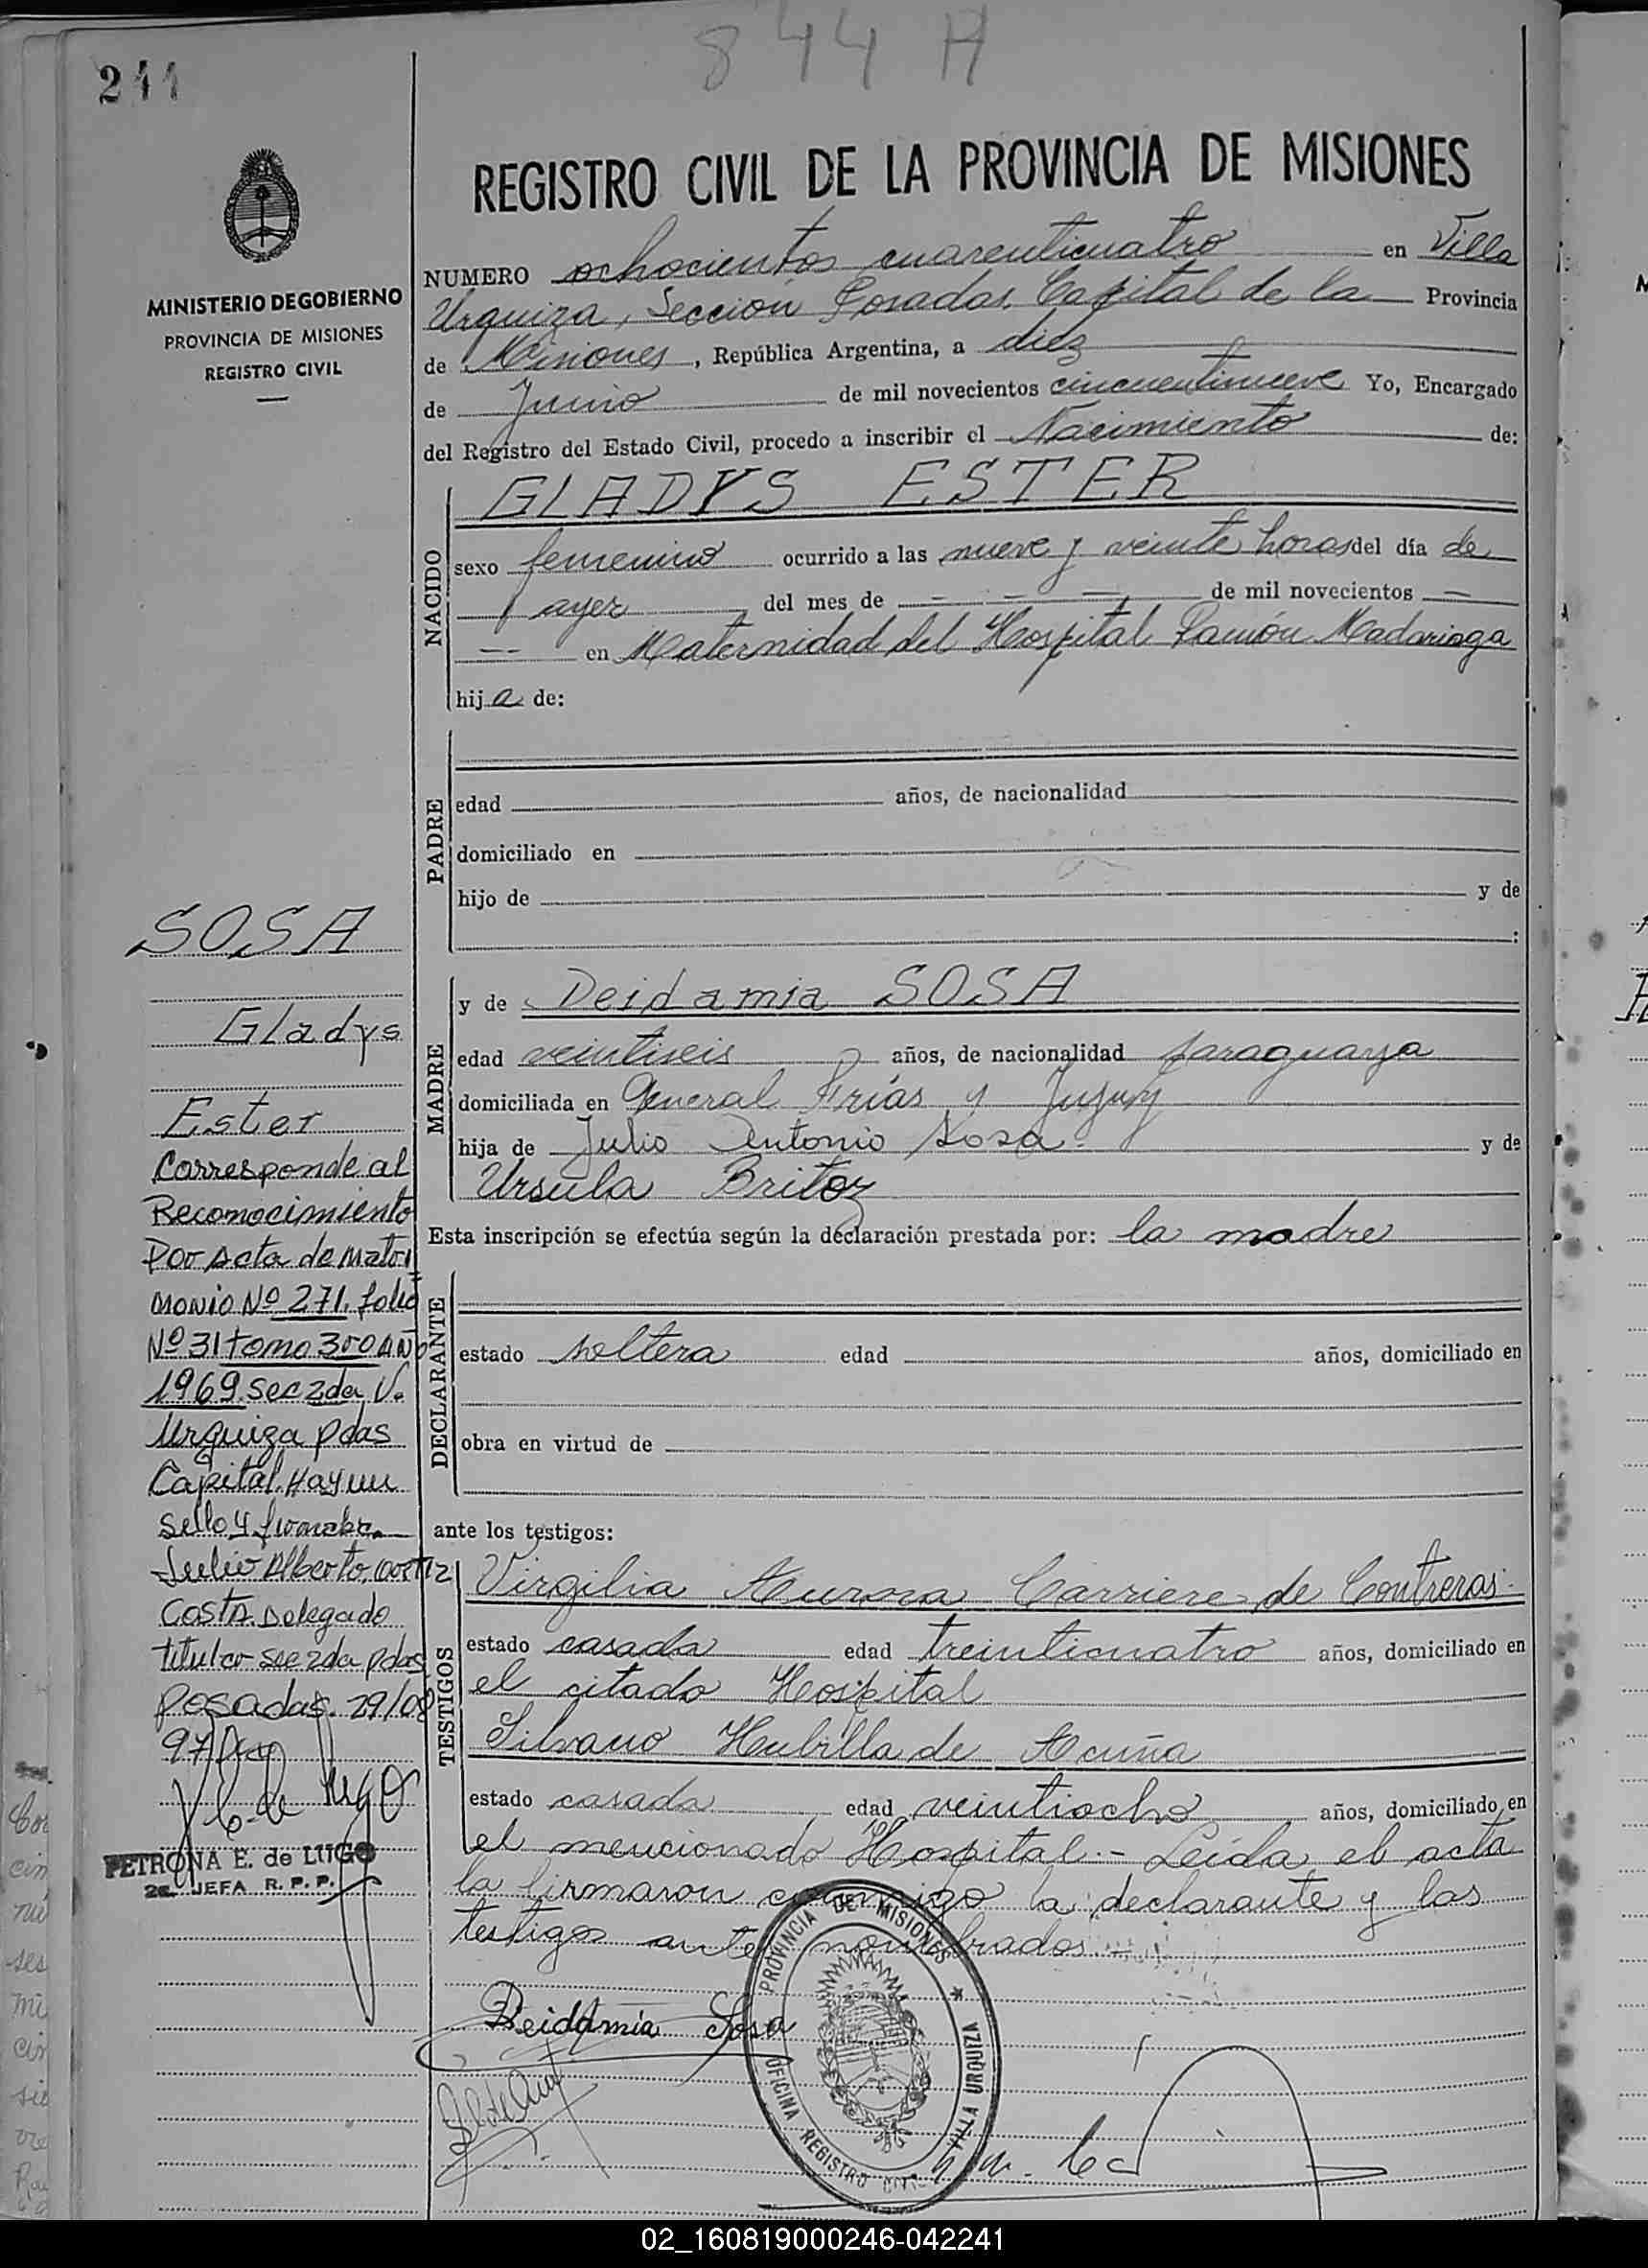 844 A
241
REGISTRO CIVIL DE LA PROVINCIA DE MISIONES
MINISTERIO DE GOBIERNO
PROVINCIA DE MISIONES
REGISTRO CIVIL
NUMERO ochocientos cuarenticuatro en Villa
Urquiza, Sección Posadas, Capital de la Provincia
de Misiones, República Argentina, a diez
de Junio de mil novecientos cincuentinueve Yo, Encargado
del Registro del Estado Civil, procedo a inscribir el Nacimiento de:
NACIDO
GLADYS ESTER
sexo femenino ocurrido a las nueve y veinte horas del día de
ayer del mes de — — — de mil novecientos —
-- en Maternidad del Hospital Ramón Madariaga
hija de:
PADRE
edad años, de nacionalidad
domiciliado en
hijo de y de
:
MADRE
y de Deidamia SOSA
edad veintiseis años, de nacionalidad paraguaya
domiciliada en General Frías y Jujuy
hija de Julio Antonio Sosa y de
Ursula Britoz
Esta inscripción se efectúa según la declaración prestada por: la madre
DECLARANTE
estado soltera edad años, domiciliado en
obra en virtud de
ante los testigos:
TESTIGOS
Virgilia Aurora Carriere de Contreras
estado casada edad treinticuatro años, domiciliado en
el citado Hospital
Silvano Hubilla de Acuña
estado casada edad veintiocho años, domiciliado en
el mencionado Hospital.- Leída el acta
la firmaron conmigo la declarante y los
testigos ante nombrados.-
Deidamia Sosa
PROVINCIA DE MISIONES
OFICINA REGISTRO CIVIL
VILLA URQUIZA
SOSA
Gladys
Ester
Corresponde al
Reconocimiento
Por Acta de Matri
monio Nº 271. folio
Nº 31 tomo 300 AÑO
1969. Sec 2da V.
Urquiza Pdas
Capital. Hay un
Sello y firma
Julio Alberto Ortiz
Costa. Delegado
titular sec 2da Pdas
Posadas. 29/08
97
PETRONA E. de LUGO
JEFA R. P. P.
02_160819000246-042241